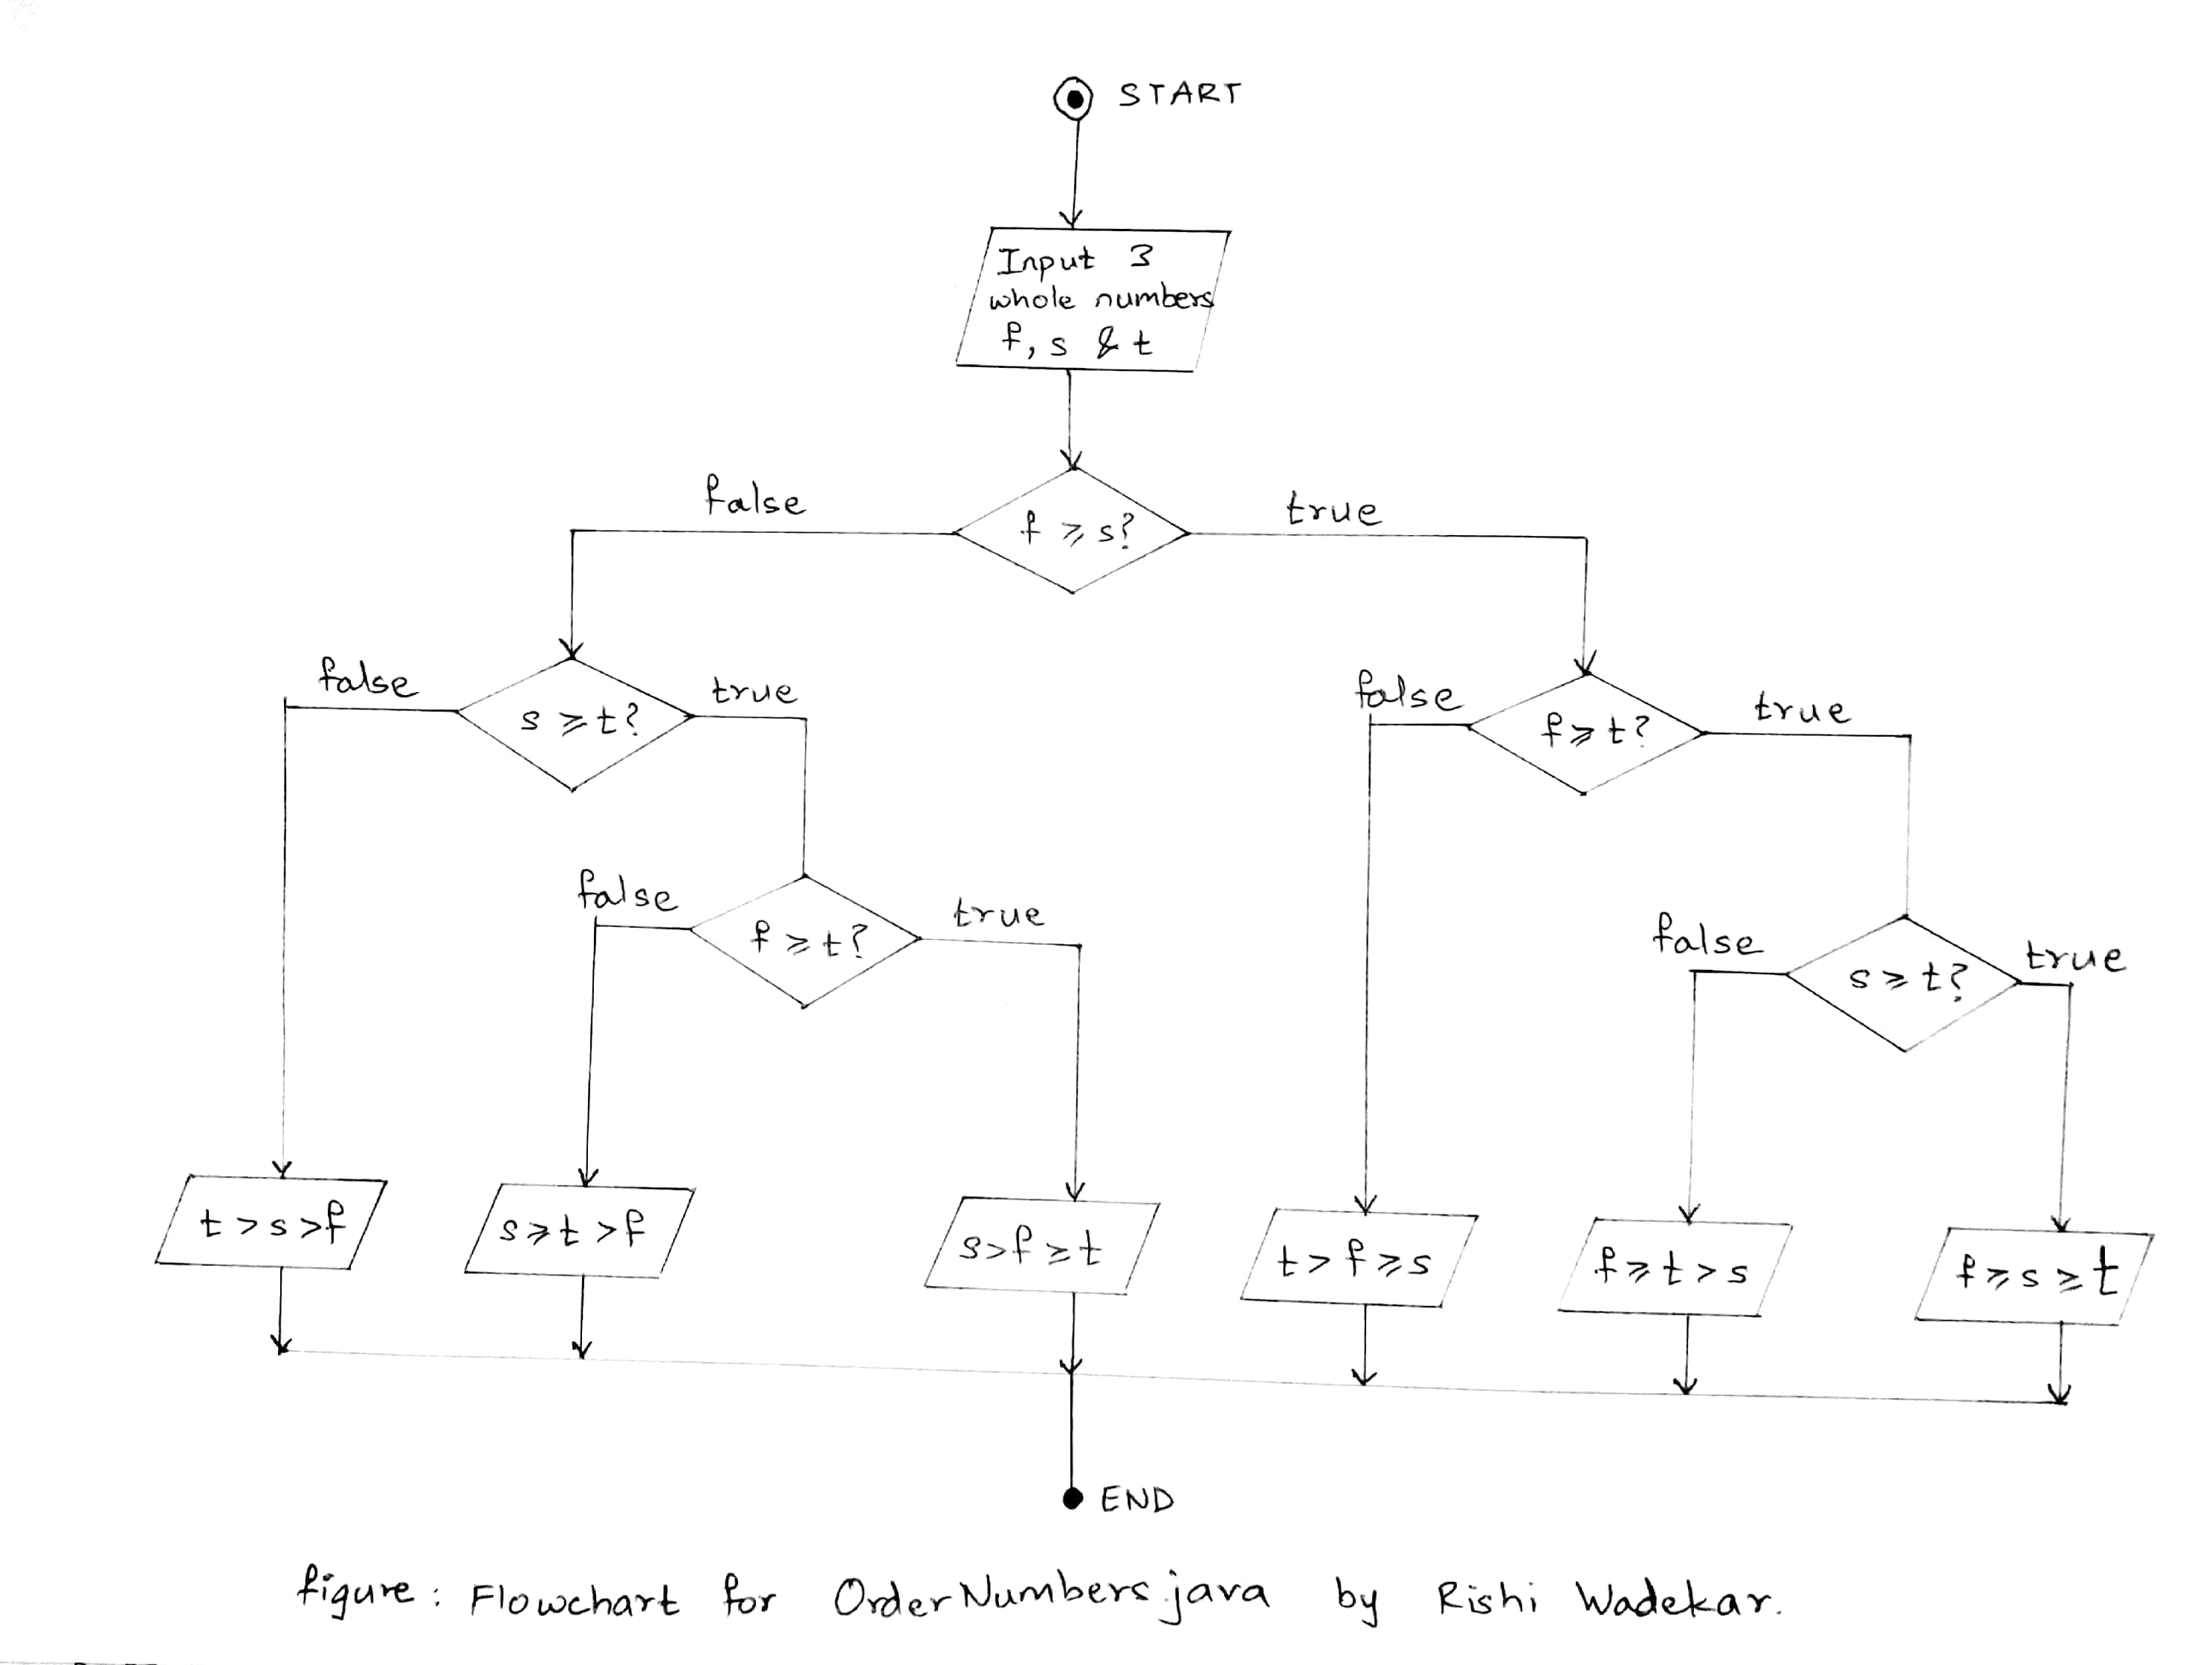 START
Input 3
whole numbers
f, s & t
false
f ⩾ s?
true
false
s ⩾ t?
true
false
f ⩾ t?
true
false
f ⩾ t?
true
false
s ⩾ t?
true
t > s > f
s ⩾ t > f
s > f ⩾ t
t > f ⩾ s
f ⩾ t > s
f ⩾ s ⩾ t
END
figure: Flowchart for OrderNumbers.java by Rishi Wadekar.